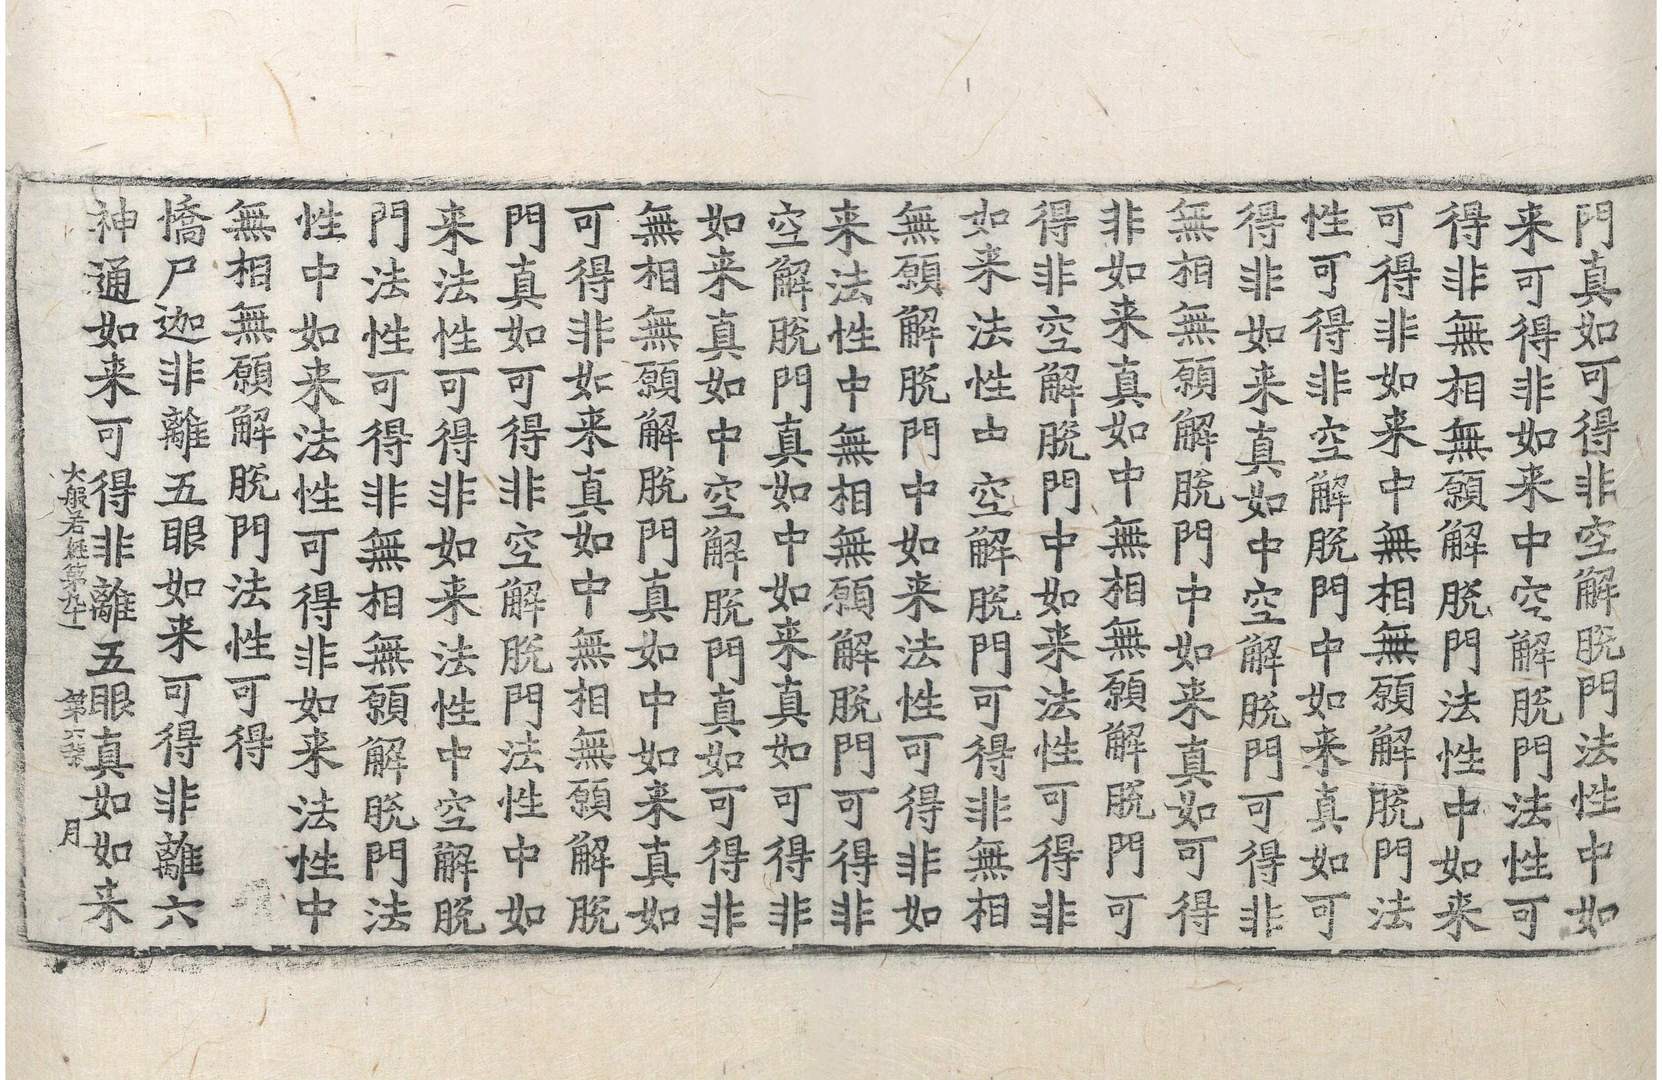 門真如可得非空解脫門法性中如
来可得非如来中空解脫門法性可
得非無相無願解脫門法性中如来
可得非如来中無相無願解脫門法
性可得非空解脫門中如来真如可
得非如来真如中空解脫門可得非
無相無願解脫門中如来真如可得
非如来真如中無相無願解脫門可
得非空解脫門中如来法性可得非
如来法性中空解脫門可得非無相
無願解脫門中如来法性可得非如
来法性中無相無願解脫門可得非
空解脫門真如中如来真如可得非
如来真如中空解脫門真如可得非
無相無願解脫門真如中如来真如
可得非如来真如中無相無願解脫
門真如可得非空解脫門法性中如
来法性可得非如来法性中空解脫
門法性可得非無相無願解脫門法
性中如来法性可得非如来法性中
無相無願解脫門法性可得
憍尸迦非離五眼如来可得非離六
神通如来可得非離五眼真如如来
大般若経第九十一 第六張 月